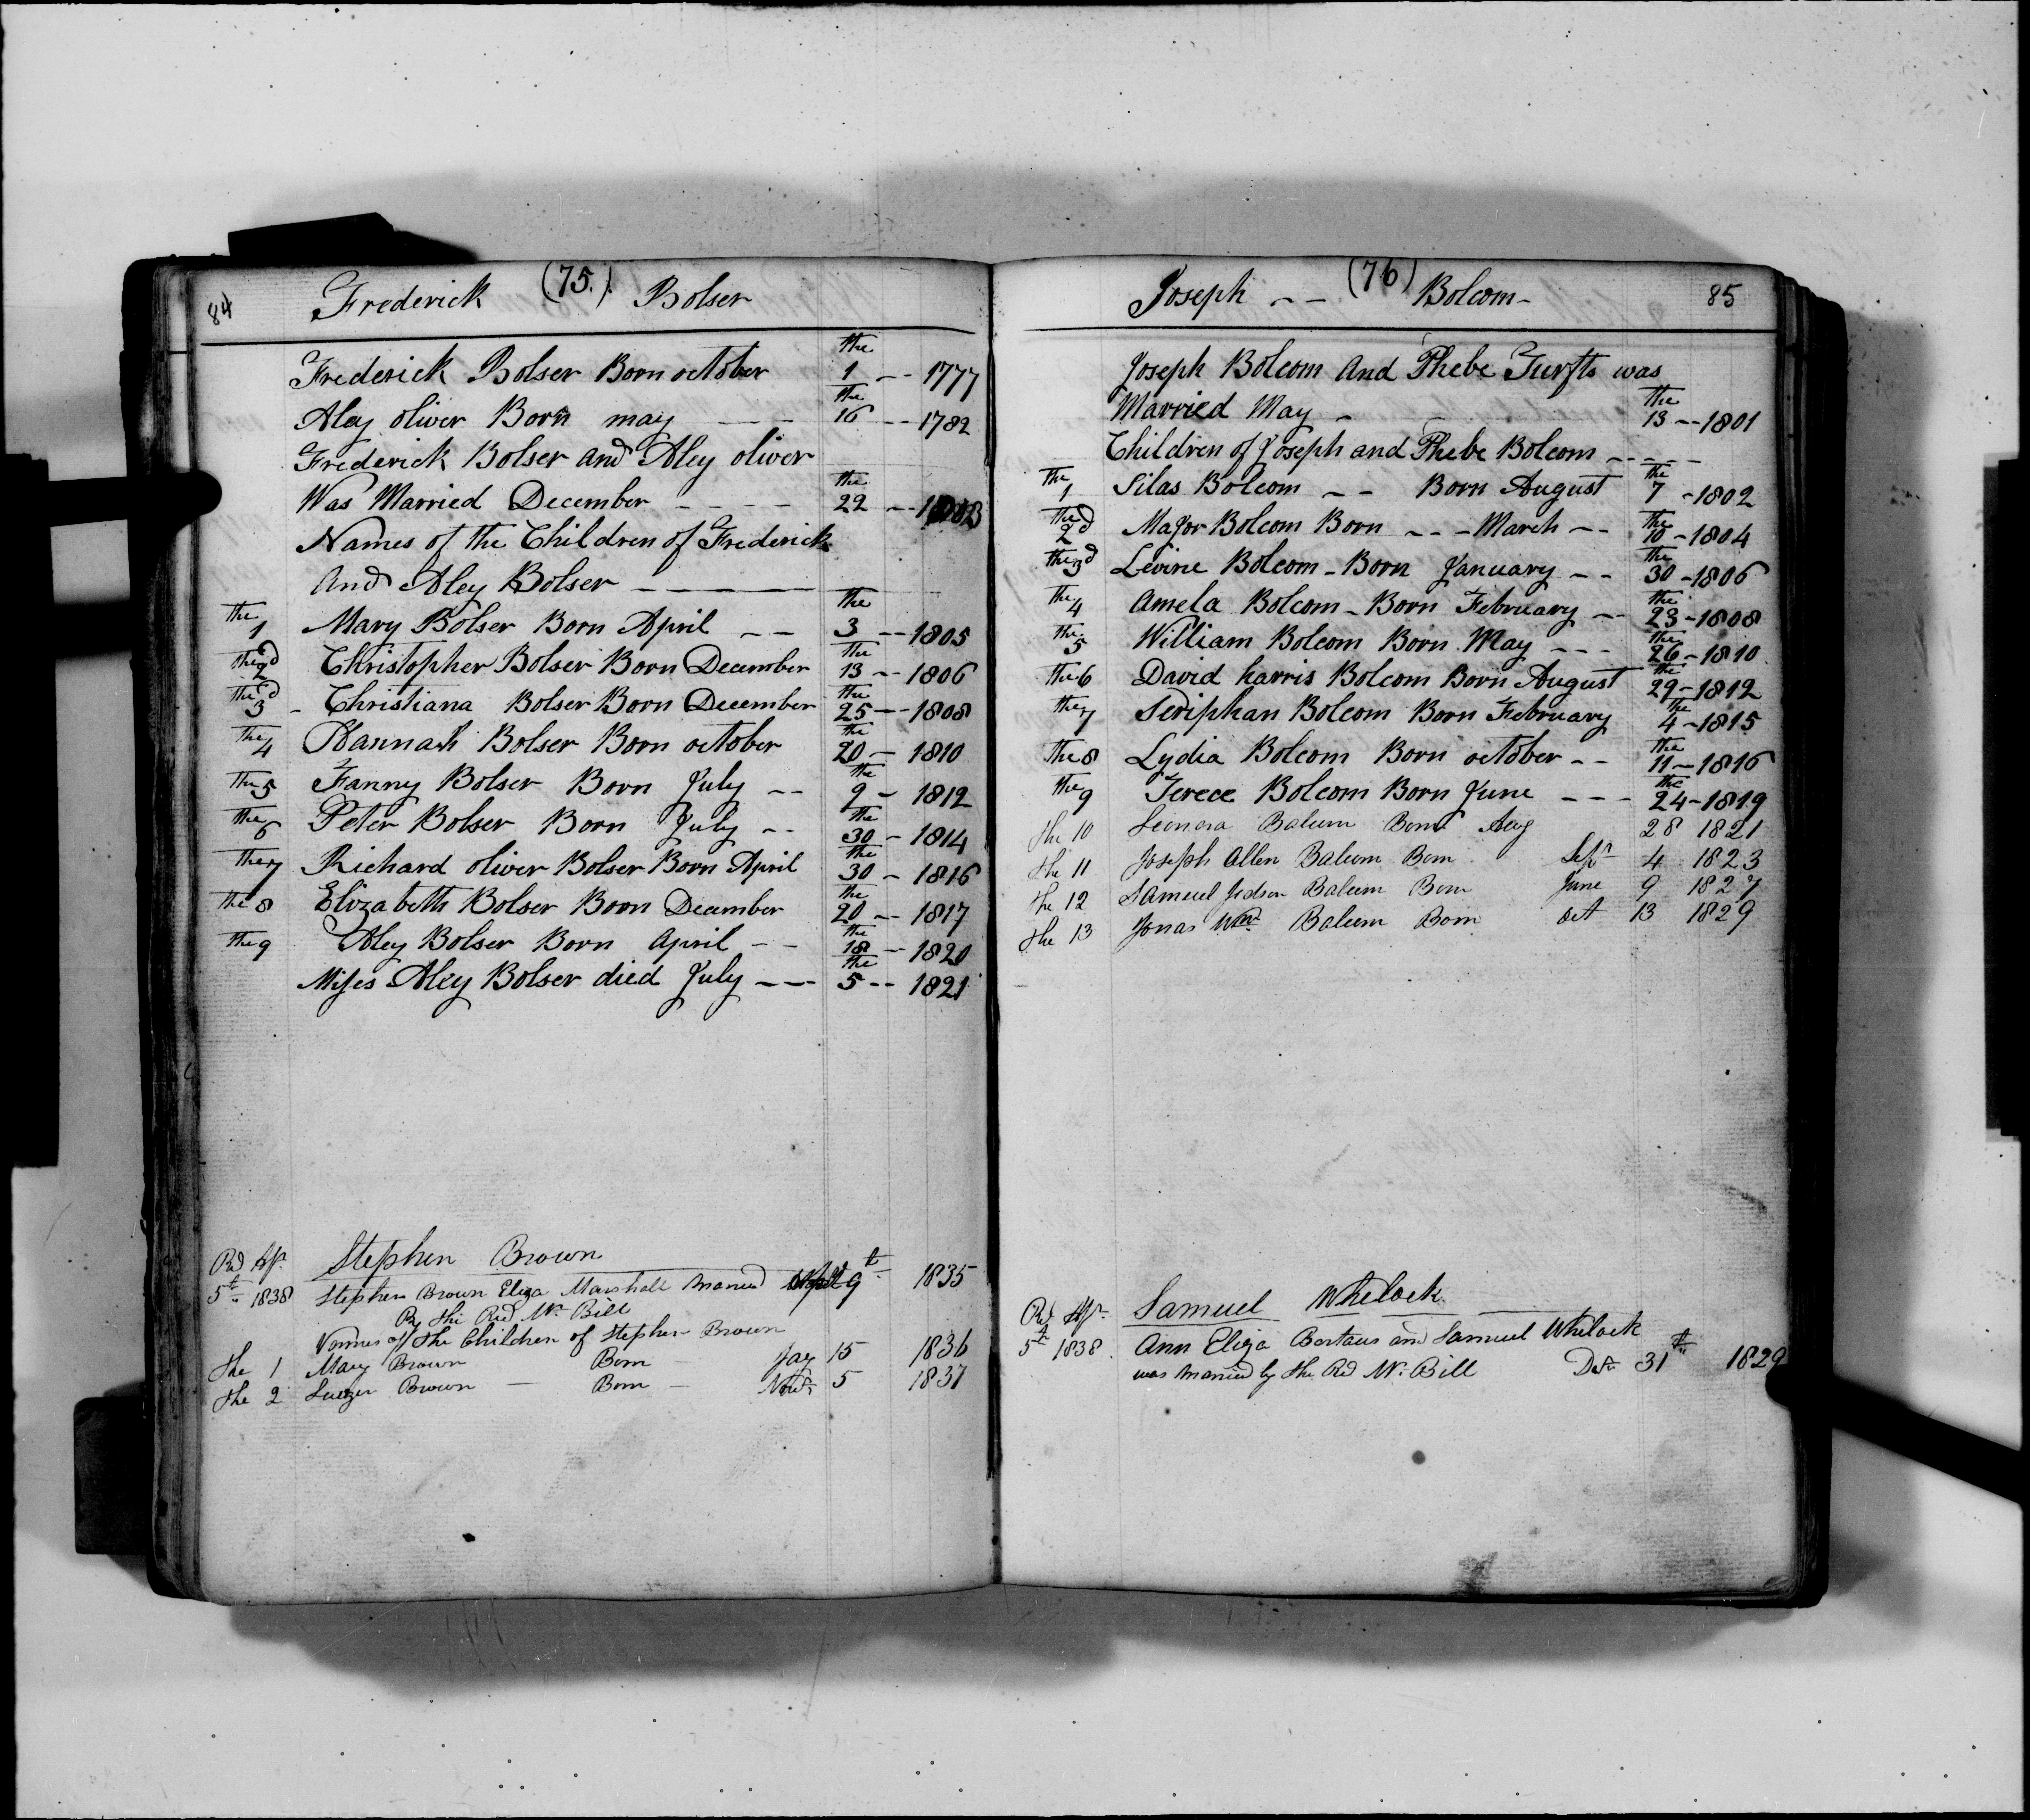 84 Frederick (75.) Bolser
Frederick Bolser Born october the 1 -- 1777
Aley oliver Born may -- the 16 -- 1782
Frederick Bolser and Aley oliver
Was Married December ---- the 22 -- 1803
Names of the Children of Frederick
And Aley Bolser -----
the 1 Mary Bolser Born April -- the 3 -- 1805
the 2d Christopher Bolser Born December the 13 -- 1806
the 3d - Christiana Bolser Born December the 25 -- 1808
the 4 Hannah Bolser Born october the 20 - 1810
the 5 Fanny Bolser Born July -- the 9 - 1812
the 6 Peter Bolser Born July -- the 30 - 1814
the 7 Richard oliver Bolser Born April the 30 - 1816
the 8 Elizabeth Bolser Born December the 20 -- 1817
the 9 Aley Bolser Born April -- the 18 - 1820
Misses Aley Bolser died July --- the 5 -- 1821
Stephen Brown
5th 1838 Stephen Brown Eliza Marshall Married 9th 1835
By the Rd Mr Bill
Names off the Children of Stephen Brown
the 1 Mary Brown Born Jay 15 1836
the 2 Brown - Born - Novr 5 1837
Joseph -- (76) Bolcom - 85
Joseph Bolcom And Phebe Turfts was
Married May - the 13 -- 1801
Children of Joseph and Phebe Bolcom -----
the 1 Silas Bolcom -- Born August the 7 - 1802
the 2d Major Bolcom Born --- March -- the 10 - 1804
the 3d Levine Bolcom - Born January -- the 30 - 1806
the 4 Amela Bolcom - Born February -- the 23 - 1808
the 5 William Bolcom Born May --- the 26 - 1810
the 6 David harris Bolcom Born August the 29 - 1812
the 7 Seriphan Bolcom Born February the 4 - 1815
the 8 Lydia Bolcom Born october -- the 11 - 1816
the 9 Terece Bolcom Born June --- the 24 - 1819
the 10 Leonora Balcum Born Aug 28 1821
the 11 Joseph Allen Balcum Born Sepr 4 1823
the 12 Samuel Judson Balcum Born June 9 1827
the 13 Jonas Wm Balcum Born oct 13 1829
Samuel Whelock
5th 1838 Ann Eliza and Samuel Whelock
was Married by the Rd Mr Bill Decr 31th 1829